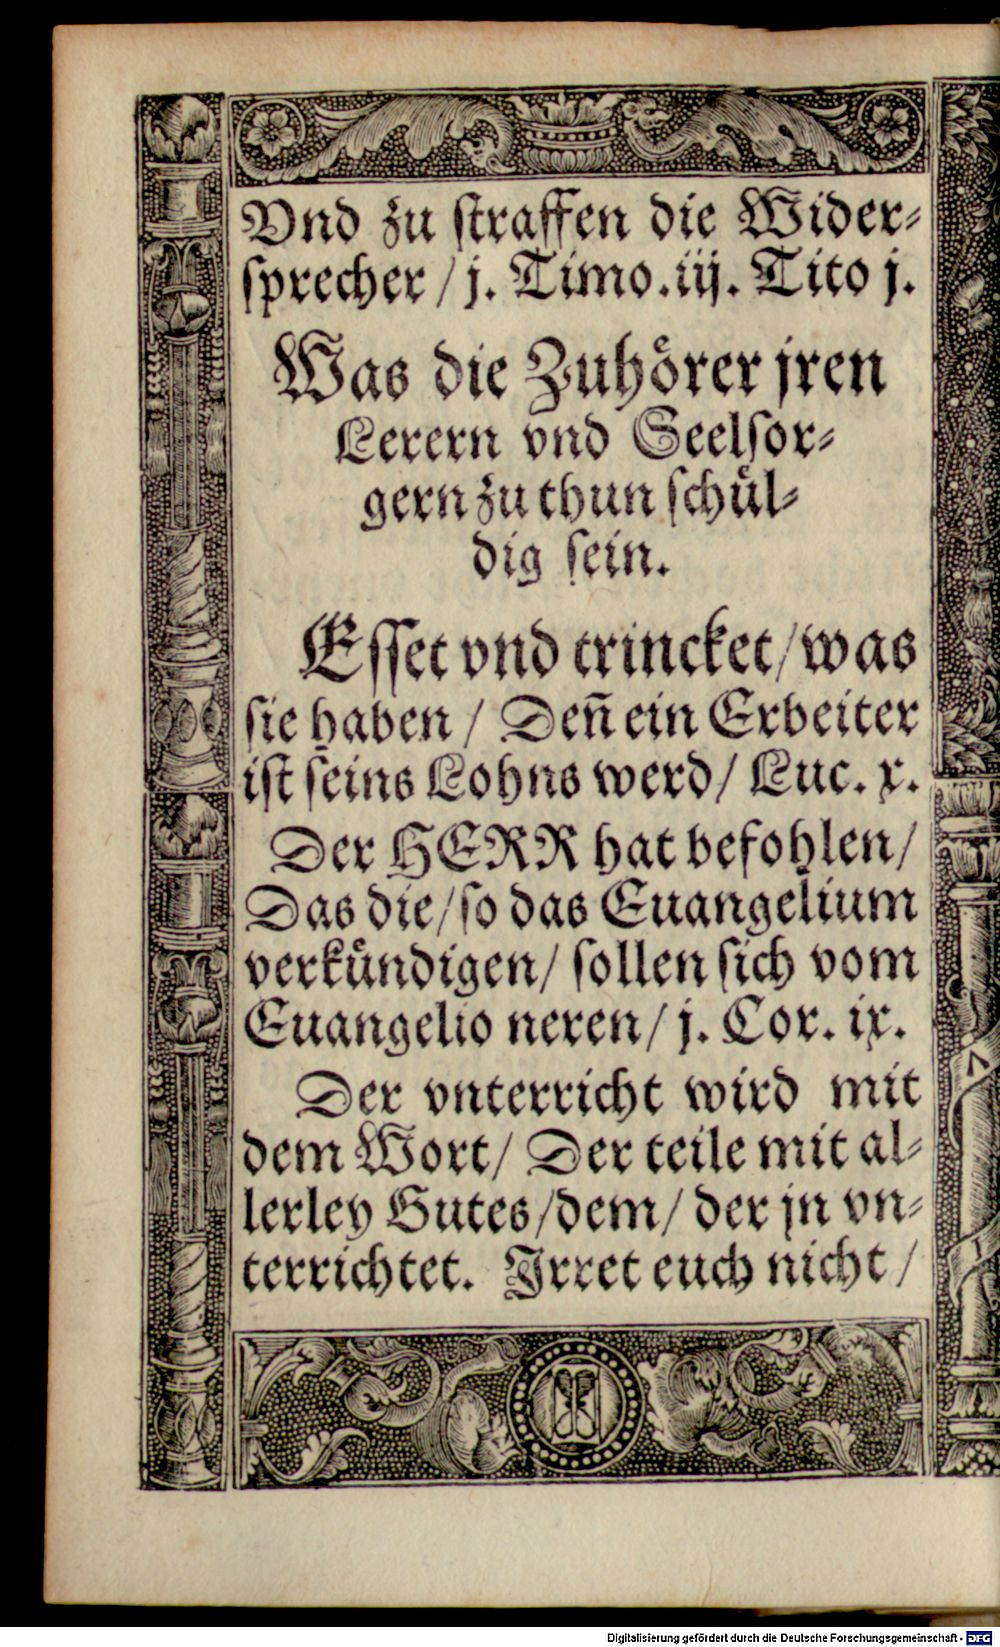 Vnd zu ſtraffen die Wider⸗
ſprecher / j. Timo. iij. Tito j.
Was die Zuhoͤrer jren
Lerern vnd Seelſor⸗
gern zu thun ſchuͤl⸗
dig ſein.
Eſſet vnd trincket / was
ſie haben / Deñ ein Erbeiter
iſt ſeins Lohns werd / Luc. x.
Der HERR hat befohlen /
Das die / ſo das Euangelium
verkuͤndigen / ſollen ſich vom
Euangelio neren / j. Cor. ix.
Der vnterricht wird mit
dem Wort / Der teile mit al⸗
lerley Gutes / dem / der jn vn⸗
terrichtet. Jrret euch nicht /
Digitalisierung gefördert durch die Deutsche Forschungsgemeinschaft - DFG